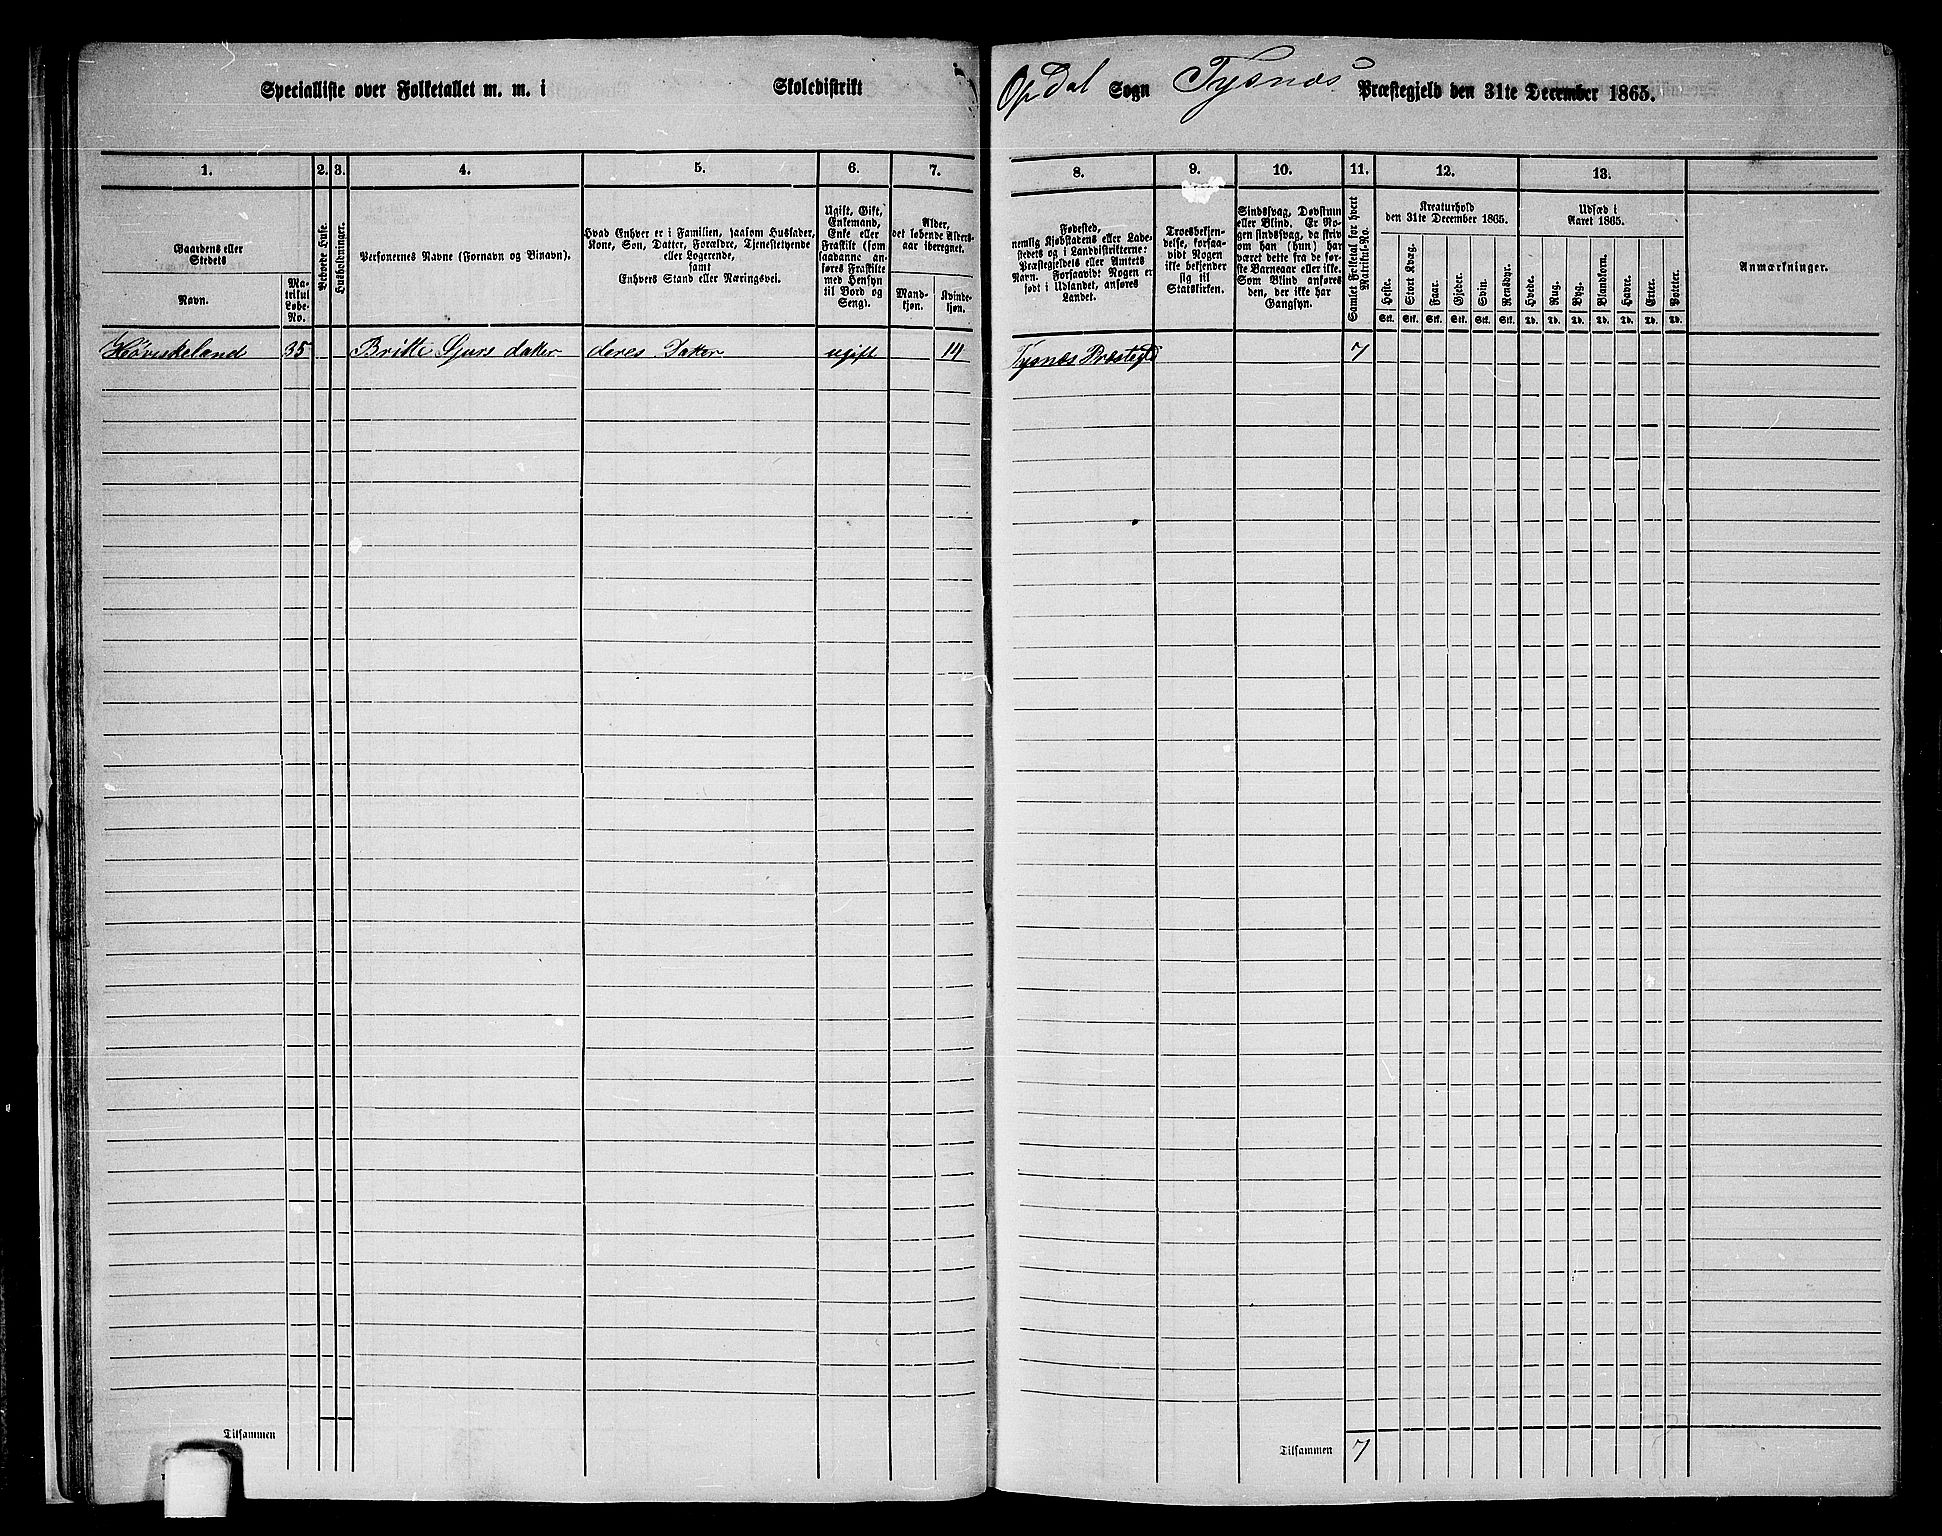 Specialliste over Folketallet m. m. i Skoledistrikt
Opdal Sogn Tysnæs Præstegjeld den 31te December 1865.
1. 2. 3. 4. 5. 6. 7.
Gaardens eller
Stedets
Navn.
Ma-
trikul
Løbe-
No.
Beboede Huse.
Husholdninger.
Personernes Navne (Fornavn og Binavn).
Hvad Enhver er i Familien, saasom Husfader,
Kone, Søn, Datter, Forældre, Tjenestetyende
eller Logerende,
samt
Enhvers Stand eller Næringsvei.
Ugift, Gift,
Enkemand,
Enke eller
Fraskilt (som
saadanne an-
føres Fraskilte
med Hensyn
til Bord og
Seng).
Alder,
det løbende Alders-
aar iberegnet.
Mand-
kjøn.
Kvinde-
kjøn.
Høviskeland 35 Britte Sjurs datter deres Datter ugift 14
Tilsammen
8. 9. 10. 11. 12. 13.
Fødested,
nemlig Kjøbstadens eller Lade-
stedets og i Landdistrikterne:
Præstegjeldets eller Amtets
Navn. Forsaavidt Nogen er
født i Udlandet, anføres
Landet.
Troesbekjen-
delse, forsaa-
vidt Nogen
ikke bekjender
sig til
Statskirken.
Sindssvag, Døvstum
eller Blind. Er No-
gen sindssvag, da skriv
om han (hun) har
været dette fra de før-
ste Barneaar eller ikke.
Som Blind anføres
den, der ikke har
Gangsyn.
Samlet Folketal for hvert
Matrikul-No.
Kreaturhold
den 31te December 1865.
Heste. Stort Kvæg. Faar. Gjeder. Svin. Rensdyr.
Stk. Stk. Stk. Stk. Stk. Stk.
Udsæd i
Aaret 1865.
Hvede. Rug. Byg. Blandkorn. Havre. Erter. Poteter.
Td. Td. Td. Td. Td. Td. Td.
Anmærkninger.
Tysnæs Præstegjd 7
Tilsammen 7